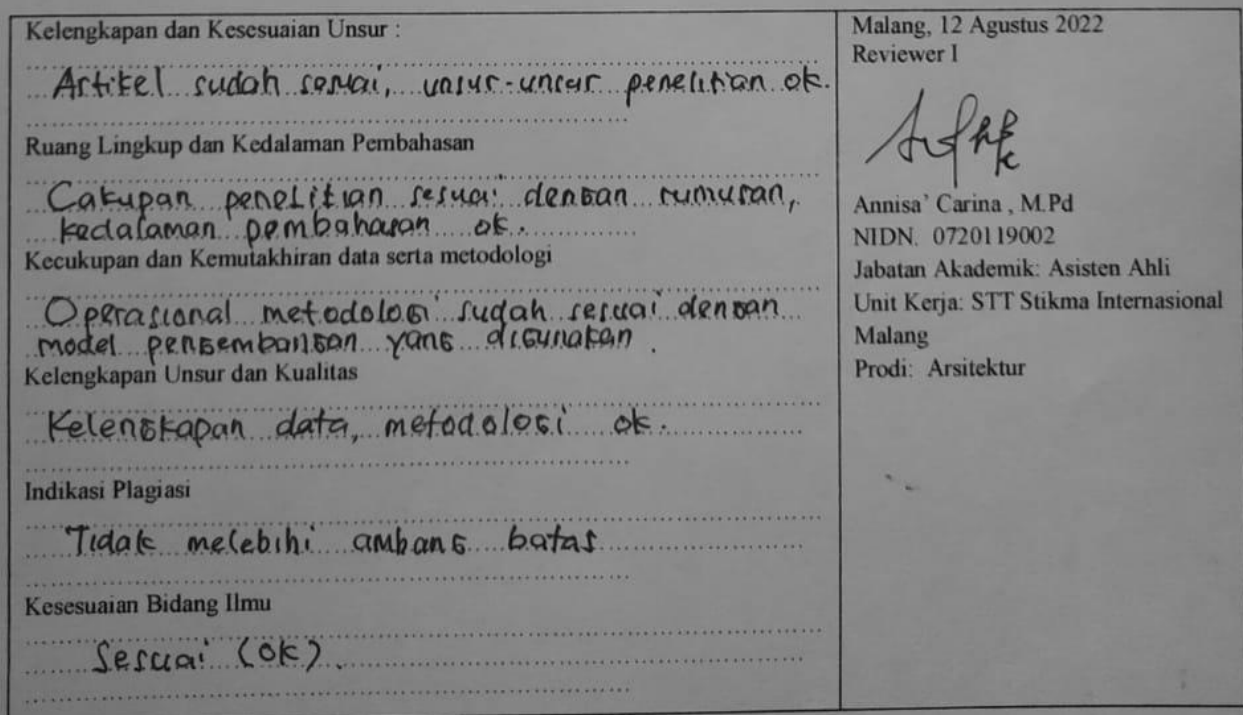 Kelengkapan dan Kesesuaian Unsur :
Artikel sudah sesuai, unsur-unsur penelitian ok.
Ruang Lingkup dan Kedalaman Pembahasan
Cakupan penelitian sesuai dengan rumusan,
kedalaman pembahasan ok.
Kecukupan dan Kemutakhiran data serta metodologi
Operasional metodologi sudah sesuai dengan
model pengembangan yang digunakan.
Kelengkapan Unsur dan Kualitas
Kelengkapan data, metodologi ok.
Indikasi Plagiasi
Tidak melebihi ambang batas
Kesesuaian Bidang Ilmu
Sesuai (ok).
Malang, 12 Agustus 2022
Reviewer I
Annisa' Carina , M.Pd
NIDN. 0720119002
Jabatan Akademik: Asisten Ahli
Unit Kerja: STT Stikma Internasional
Malang
Prodi: Arsitektur